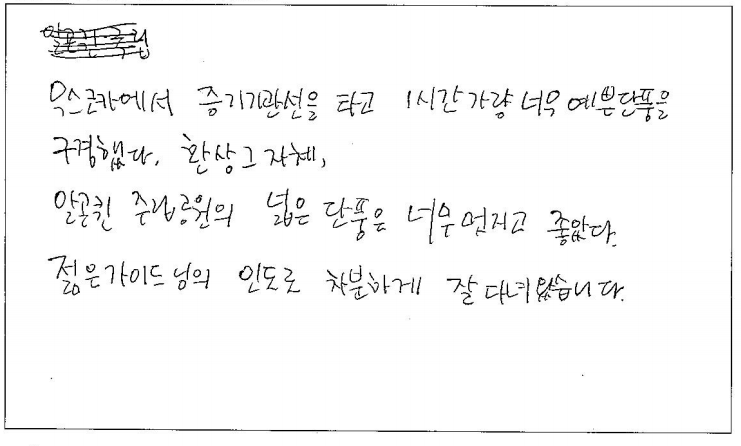 무스코카에서 증기기관선을 타고 1시간가량 너무 예쁜단풍을
구경했다. 환상그자체,
알곤퀸 주립공원의 넓은 단풍은 너무 멋지고 좋았다.
젊은가이드님의 인도로 차분하게 잘다녀왔습니다.